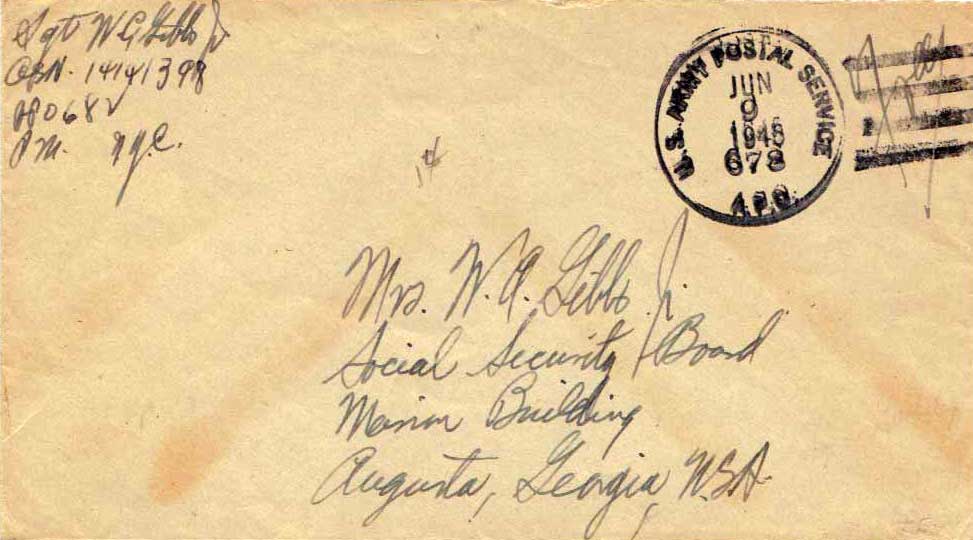 Sgt W G Gibbs Jr
ASN. 14141398
APO 682
P.M. N.Y.C.
U.S. ARMY POSTAL SERVICE
JUN
9
1945
678
A.P.O.
Free
14
Mrs. W. G. Gibbs Jr.
Social Security Board
Marion Building
Augusta, Georgia, U.S.A.